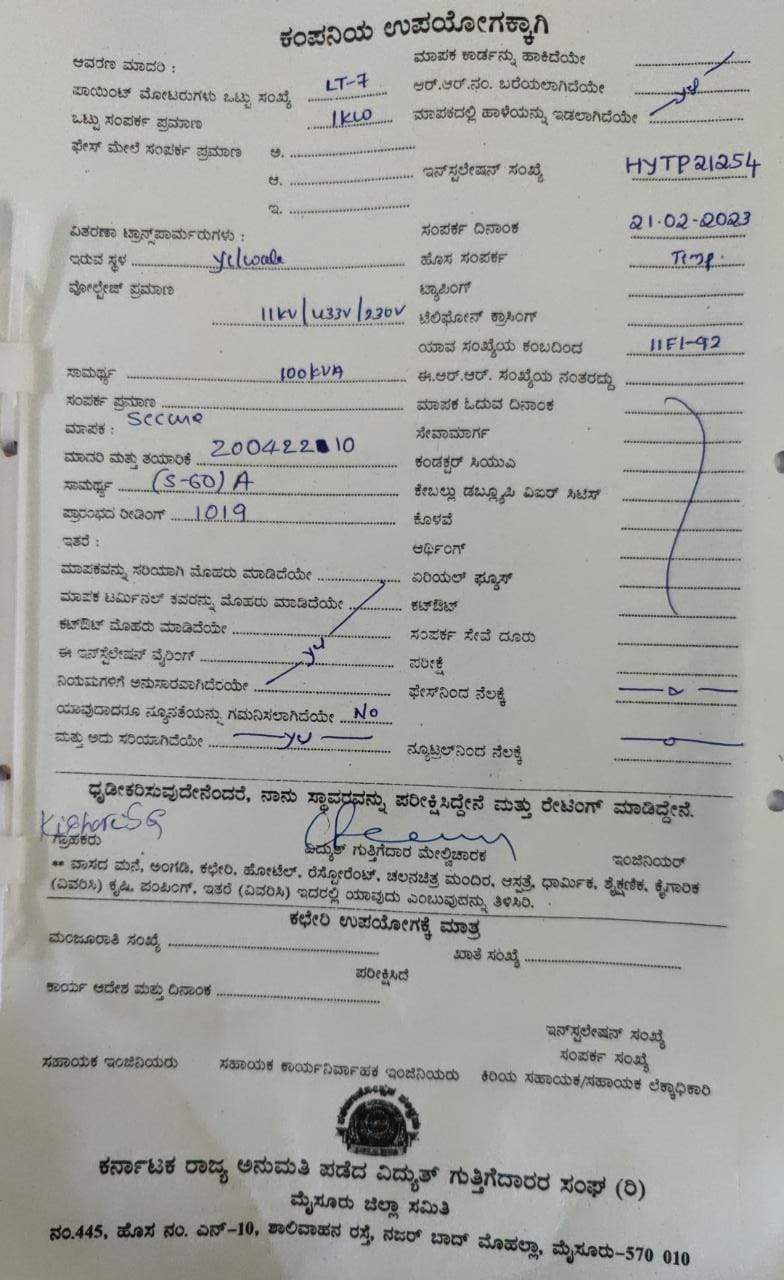 ಕಂಪನಿಯ ಉಪಯೋಗಕ್ಕಾಗಿ
ಆವರಣ ಮಾದರಿ : ಮಾಪಕ ಕಾರ್ಡನ್ನು ಹಾಕಿದೆಯೇ
ಪಾಯಿಂಟ್ ಮೋಟರುಗಳು ಒಟ್ಟು ಸಂಖ್ಯೆ LT-7 ಆರ್.ಆರ್.ನಂ. ಬರೆಯಲಾಗಿದೆಯೇ yes
ಒಟ್ಟು ಸಂಪರ್ಕ ಪ್ರಮಾಣ 1KW ಮಾಪಕದಲ್ಲಿ ಹಾಳೆಯನ್ನು ಇಡಲಾಗಿದೆಯೇ
ಫೇಸ್ ಮೇಲೆ ಸಂಪರ್ಕ ಪ್ರಮಾಣ ಅ.
ಆ. ಇನ್‌ಸ್ಟಲೇಷನ್ ಸಂಖ್ಯೆ HYTP21254
ಇ.
ವಿತರಣಾ ಟ್ರಾನ್ಸ್‌ಪಾರ್ಮರುಗಳು : ಸಂಪರ್ಕ ದಿನಾಂಕ 21.02-2023
ಇರುವ ಸ್ಥಳ Yelwala ಹೊಸ ಸಂಪರ್ಕ Temp.
ವೋಲ್ಟೇಜ್ ಪ್ರಮಾಣ 11KV/433V/230V ಟ್ಯಾಪಿಂಗ್
ಟೆಲಿಫೋನ್ ಕ್ರಾಸಿಂಗ್
ಯಾವ ಸಂಖ್ಯೆಯ ಕಂಬದಿಂದ 11F1-92
ಸಾಮರ್ಥ್ಯ 100KVA ಈ.ಆರ್.ಆರ್. ಸಂಖ್ಯೆಯ ನಂತರದ್ದು
ಸಂಪರ್ಕ ಪ್ರಮಾಣ ಮಾಪಕ ಓದುವ ದಿನಾಂಕ
ಮಾಪಕ : Secure ಸೇವಾಮಾರ್ಗ
ಮಾದರಿ ಮತ್ತು ತಯಾರಿಕೆ 20042210 ಕಂಡಕ್ಟರ್ ಸಿಯುಎ
ಸಾಮರ್ಥ್ಯ (5-60)A ಕೇಬಲ್ಲು ಡಬ್ಲ್ಯೂಪಿ ವಿಐರ್ ಸಿಟಿಸ್
ಪ್ರಾರಂಭದ ರೀಡಿಂಗ್ 1019 ಕೊಳವೆ
ಇತರೆ : ಆರ್ಥಿಂಗ್
ಮಾಪಕವನ್ನು ಸರಿಯಾಗಿ ಮೊಹರು ಮಾಡಿದೆಯೇ ಏರಿಯಲ್ ಫ್ಯೂಸ್
ಮಾಪಕ ಟರ್ಮಿನಲ್ ಕವರನ್ನು ಮೊಹರು ಮಾಡಿದೆಯೇ ಕಟ್‌ಔಟ್
ಕಟ್‌ಔಟ್ ಮೊಹರು ಮಾಡಿದೆಯೇ ಸಂಪರ್ಕ ಸೇವೆ ದೂರು
ಈ ಇನ್‌ಸ್ಟೆಲೇಷನ್ ವೈರಿಂಗ್ yes ಪರೀಕ್ಷೆ
ನಿಯಮಗಳಿಗೆ ಅನುಸಾರವಾಗಿದೆರಯೇ ಫೇಸ್‌ನಿಂದ ನೆಲಕ್ಕೆ
ಯಾವುದಾದರೂ ನ್ಯೂನತೆಯನ್ನು ಗಮನಿಸಲಾಗಿದೆಯೇ NO
ಮತ್ತು ಅದು ಸರಿಯಾಗಿದೆಯೇ yes ನ್ಯೂಟ್ರಲ್‌ನಿಂದ ನೆಲಕ್ಕೆ
ಧೃಡೀಕರಿಸುವುದೇನೆಂದರೆ, ನಾನು ಸ್ಥಾವರವನ್ನು ಪರೀಕ್ಷಿಸಿದ್ದೇನೆ ಮತ್ತು ರೇಟಿಂಗ್ ಮಾಡಿದ್ದೇನೆ.
Kishore SG
ಗ್ರಾಹಕರು ವಿದ್ಯುತ್ ಗುತ್ತಿಗೆದಾರ ಮೇಲ್ವಿಚಾರಕ ಇಂಜಿನಿಯರ್
** ವಾಸದ ಮನೆ, ಅಂಗಡಿ, ಕಛೇರಿ, ಹೋಟೆಲ್. ರೆಸ್ಟೋರೆಂಟ್, ಚಲನಚಿತ್ರ ಮಂದಿರ, ಆಸ್ಪತ್ರೆ, ಧಾರ್ಮಿಕ, ಶೈಕ್ಷಣಿಕ, ಕೈಗಾರಿಕ
(ವಿವರಿಸಿ) ಕೃಷಿ, ಪಂಪಿಂಗ್, ಇತರೆ (ವಿವರಿಸಿ) ಇದರಲ್ಲಿ ಯಾವುದು ಎಂಬುವುದನ್ನು ತಿಳಿಸಿರಿ.
ಕಛೇರಿ ಉಪಯೋಗಕ್ಕೆ ಮಾತ್ರ
ಮಂಜೂರಾತಿ ಸಂಖ್ಯೆ ಖಾತೆ ಸಂಖ್ಯೆ
ಪರೀಕ್ಷಿಸಿದೆ
ಕಾರ್ಯ ಆದೇಶ ಮತ್ತು ದಿನಾಂಕ
ಇನ್‌ಸ್ಟಲೇಷನ್ ಸಂಖ್ಯೆ
ಸಂಪರ್ಕ ಸಂಖ್ಯೆ
ಸಹಾಯಕ ಇಂಜಿನಿಯರು ಸಹಾಯಕ ಕಾರ್ಯನಿರ್ವಾಹಕ ಇಂಜಿನಿಯರು ಕಿರಿಯ ಸಹಾಯಕ/ಸಹಾಯಕ ಲೆಕ್ಕಾಧಿಕಾರಿ
ಕರ್ನಾಟಕ ರಾಜ್ಯ ಅನುಮತಿ ಪಡೆದ ವಿದ್ಯುತ್ ಗುತ್ತಿಗೆದಾರರ ಸಂಘ (ರಿ)
ಮೈಸೂರು ಜಿಲ್ಲಾ ಸಮಿತಿ
ನಂ.445, ಹೊಸ ನಂ. ಎನ್-10, ಶಾಲಿವಾಹನ ರಸ್ತೆ, ನಜರ್ ಬಾದ್ ಮೊಹಲ್ಲಾ, ಮೈಸೂರು-570 010